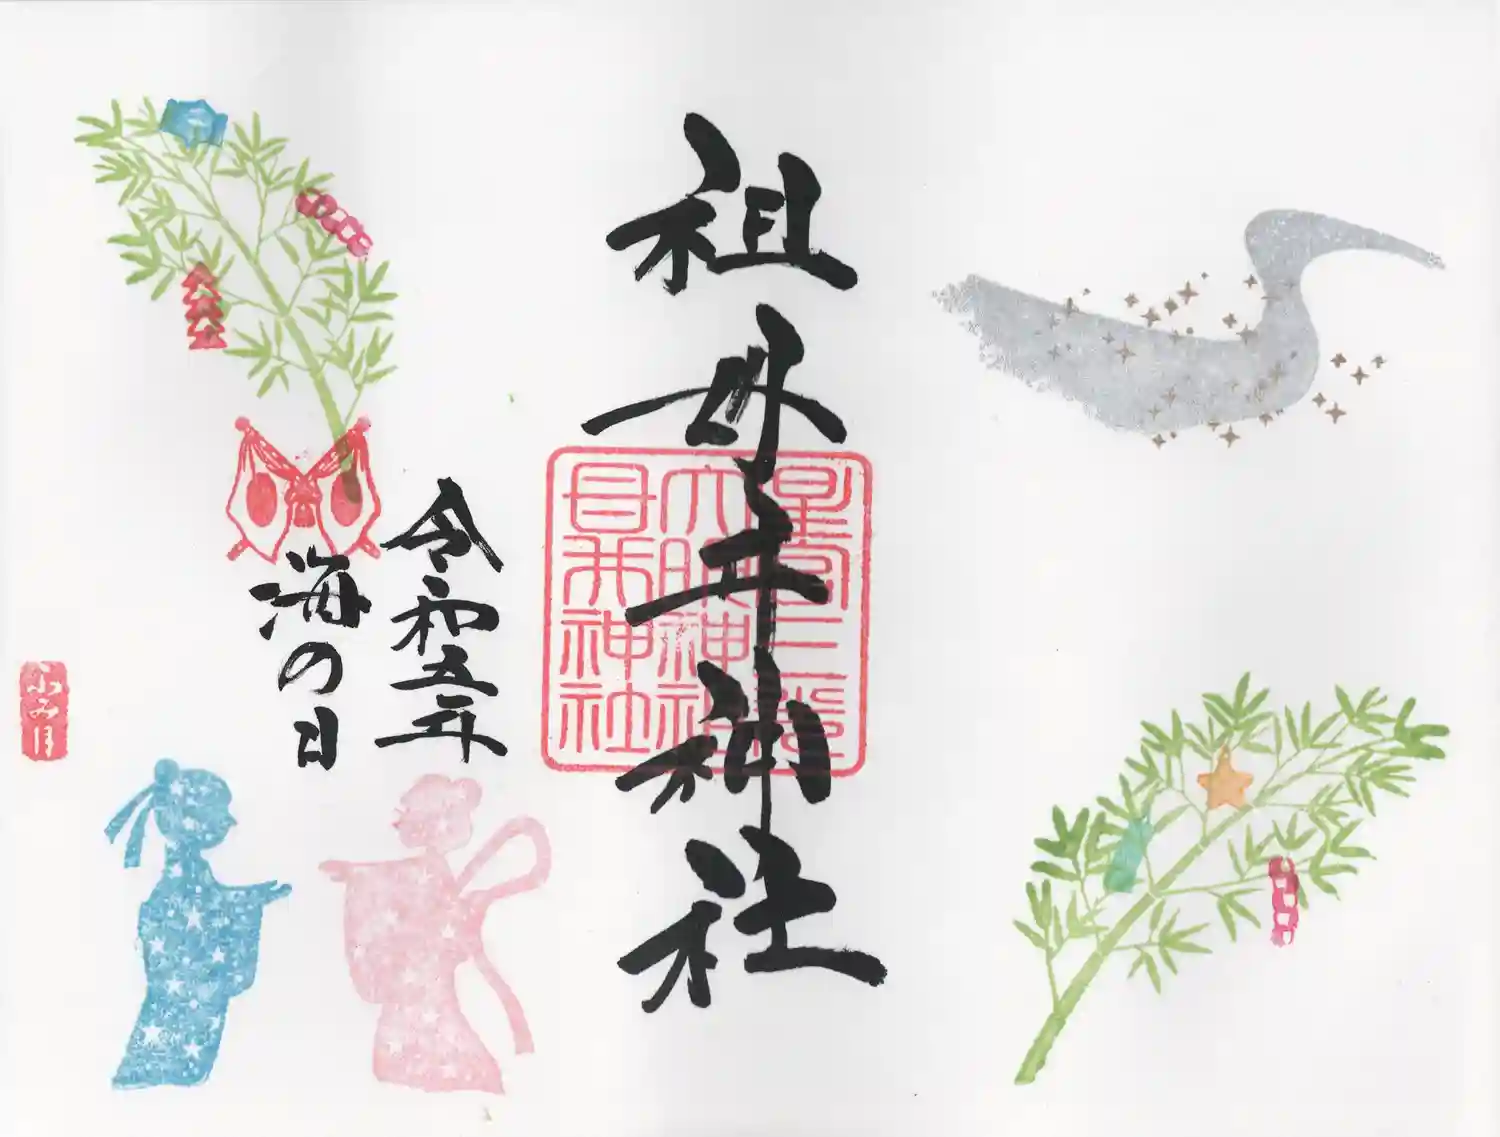 祖母井神社
星宮
大明神祖
母井神社
令和五年
海の日
ふみ月